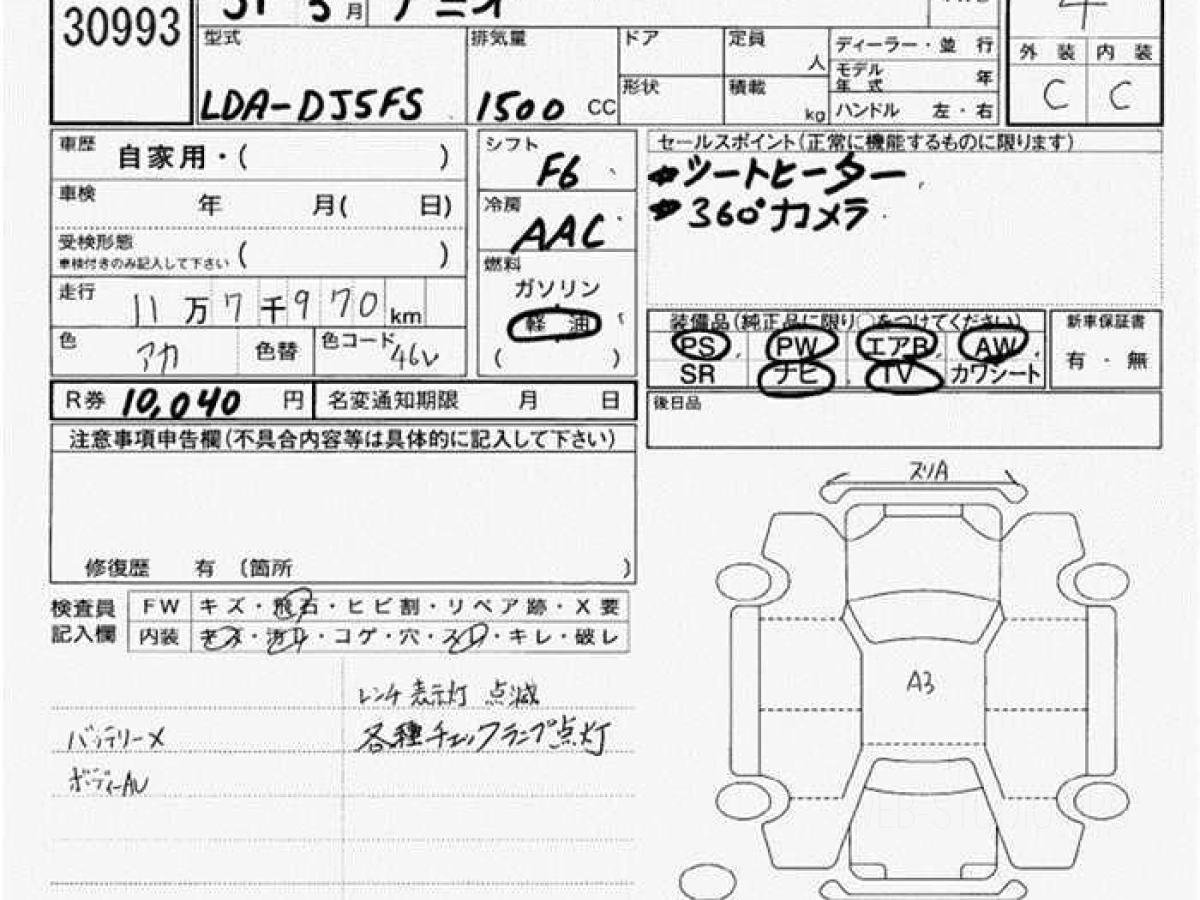 30993
31 3月 デミオ
4
型式
LDA-DJ5FS
排気量
1500 CC
ドア
定員
人
形状
積載
kg
ディーラー・並 行
モデル年式 年
ハンドル 左・右
外 装 内 装
C C
車歴
自家用・( )
車検
年 月( 日)
受検形態
車検付きのみ記入して下さい ( )
走行
11万7千970km
色
アカ
色替
色コード 46V
シフト
F6
冷房
AAC
燃料
ガソリン
軽 油
( )
セールスポイント(正常に機能するものに限ります)
シートヒーター
360°カメラ
装備品(純正品に限り〇をつけてください)
PS PW エアB AW
SR ナビ TV カワシート
新車保証書
有・無
R券 10,040 円
名変通知期限 月 日
後日品
注意事項申告欄(不具合内容等は具体的に記入して下さい)
修復歴 有 (箇所 )
検査員
記入欄
FW キズ・飛石・ヒビ割・リペア跡・X要
内装 キズ・汚レ・コゲ・穴・スレ・キレ・破レ
レンチ表示灯 点滅
バッテリーメ
各種チェックランプ点灯
ボディーAU
スリA
A3